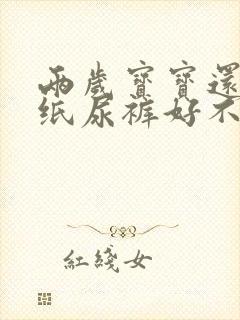 兩歲寶寶還
纸尿裤好不
紅綫女